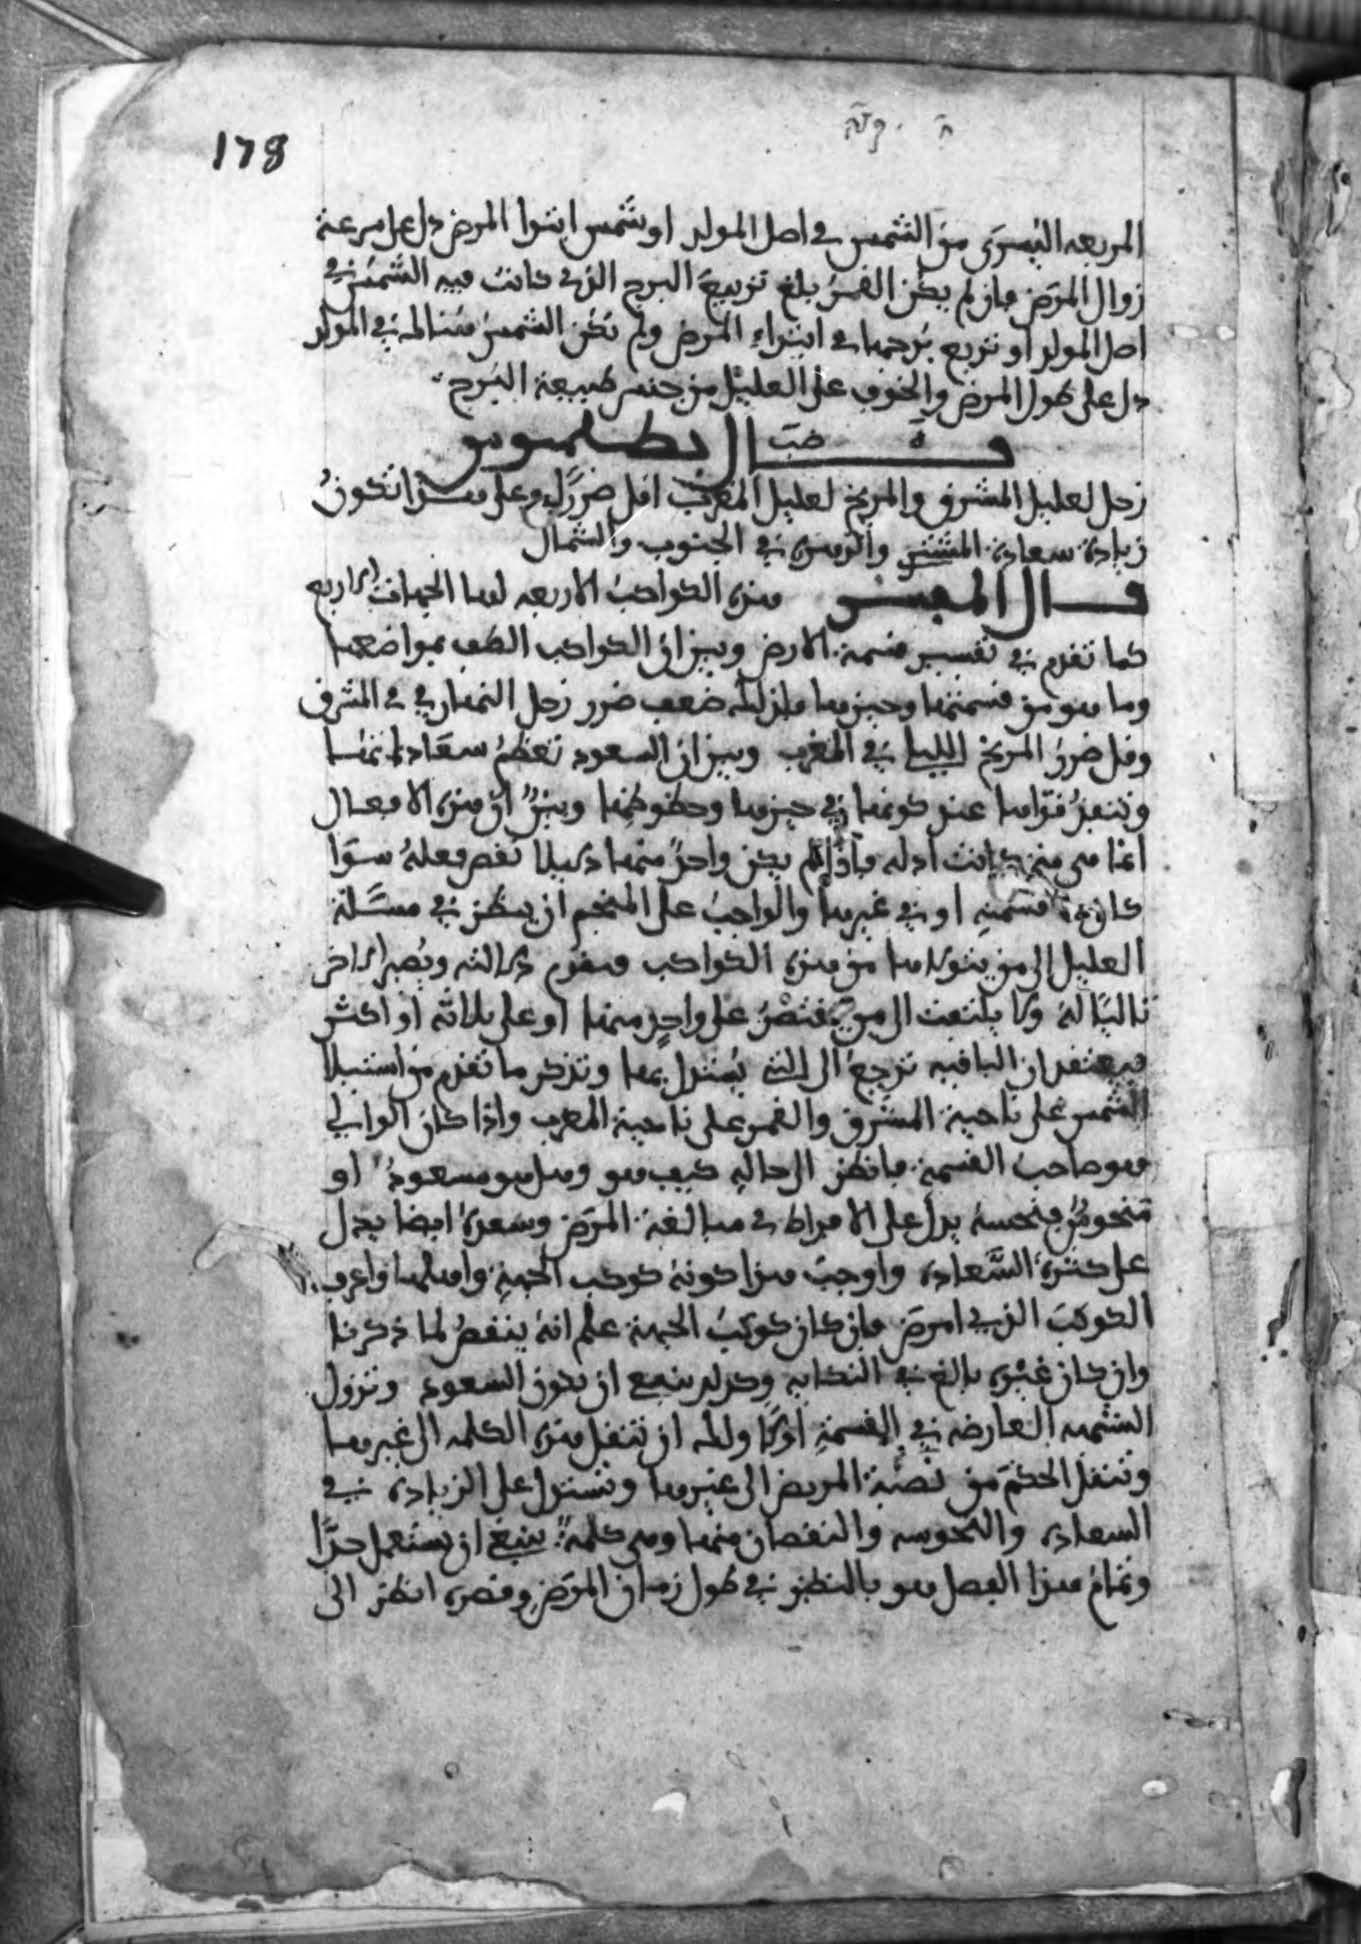 178
المربعه اليسرى من الشمس في اصل المولد او شمس ابتدا المرض دل على سرعة
زوال المرض فان لم يكن القمر بلغ تربيع البرج الذي كانت فيه الشمس في
اصل المولد او تربيع برجها في ابتداء المرض ولم تكن الشمس هنالك في المولد
دل على طول المرض والخوف على العليل من جنس طبيعة البرج
قال بطلميوس
زحل لعليل المشرق والمريخ لعليل المغرب اقل ضررا وعلى هذا تكون
زيادة سعادة المشتري والزهرة في الجنوب والشمال
قال المفسر هذه الكواكب الاربعه لها الجهات الاربع
كما تقدم في تفسير قسمة الارض وبين ان الكواكب الطف بمواضعها
وما هو من قسمتها وحيزها فلذلك ضعف ضرر زحل النهاري في المشرق
وقل ضرر المريخ الليلي في المغرب وبين ان السعود تعظم سعاداتها
وتنفذ قواها عند كونها في حيزها وحظوظها وبين ان هذه الافعال
انما هي متى كانت ادله فاذا لم يكن واحد منها دليلا نقص فعله سوا
كان في قسمته او في غيرها والواجب على المنجم ان ينظر في مسئلة
العليل الى من يتولاها من هذه الكواكب فيقدم دلالته ويصير الاخر
تاليا له ولا يلتفت الى من يقتصر على واحد منها او على ثلاثه او اكثر
فيعتقد ان الباقيه ترجع الى التي يستدل بها وتذكر ما تقدم من استيلا
الشمس على ناحية المشرق والقمر على ناحية المغرب واذا كان الوالي
هو صاحب القسمة فانظر الى حاله كيف هو وهل هو مسعود او
منحوس فنحسه يدل على الافراط في مبالغة المرض وسعده ايضا يدل
على كثرة السعادة واوجب هذا كونه كوكب الجهة وافهمها واعرف
الكوكب الذي امرض فان كان كوكب الجهة علم انه ينقص لما ذكرنا
وان كان غيره بالغ في النكايه وكذلك ينبغي ان يكون السعود وتزول
الشبهه العارضه في القسمة اولا ولك ان تنقل هذه الكلمه الى غيرها
وتنقل الحكم من نصبة المريض الى غيرها وتستدل على الزيادة في
السعادة والنحوسه والنقصان منها وهي كلمة ينبغي ان يستعمل جدا
وتمام هذا الفصل هو بالنظر في طول زمان المرض وقصره انظر الى